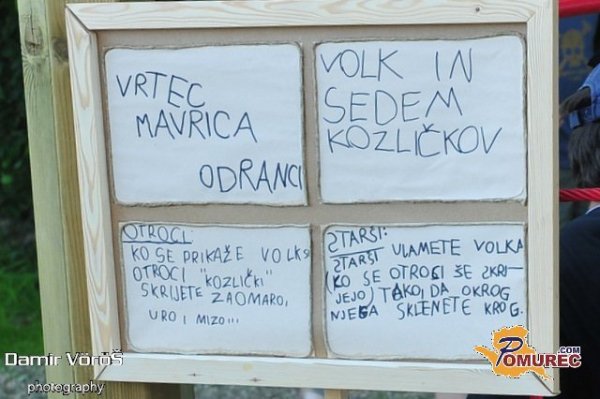 VRTEC
MAVRICA
ODRANCI
VOLK IN
SEDEM
KOZLIČKOV
OTROCI:
KO SE PRIKAŽE VOLK,
OTROCI "KOZLIČKI"
SKRIJETE ZA OMARO,
URO I MIZO...
STARŠI:
STARŠI ULAMETE VOLKA
(KO SE OTROCI ŽE SKRI-
JEJO) TAKO, DA OKROG
NJEGA SKLENETE KROG.
Damir Vöröš
photography
POMUREC
.COM